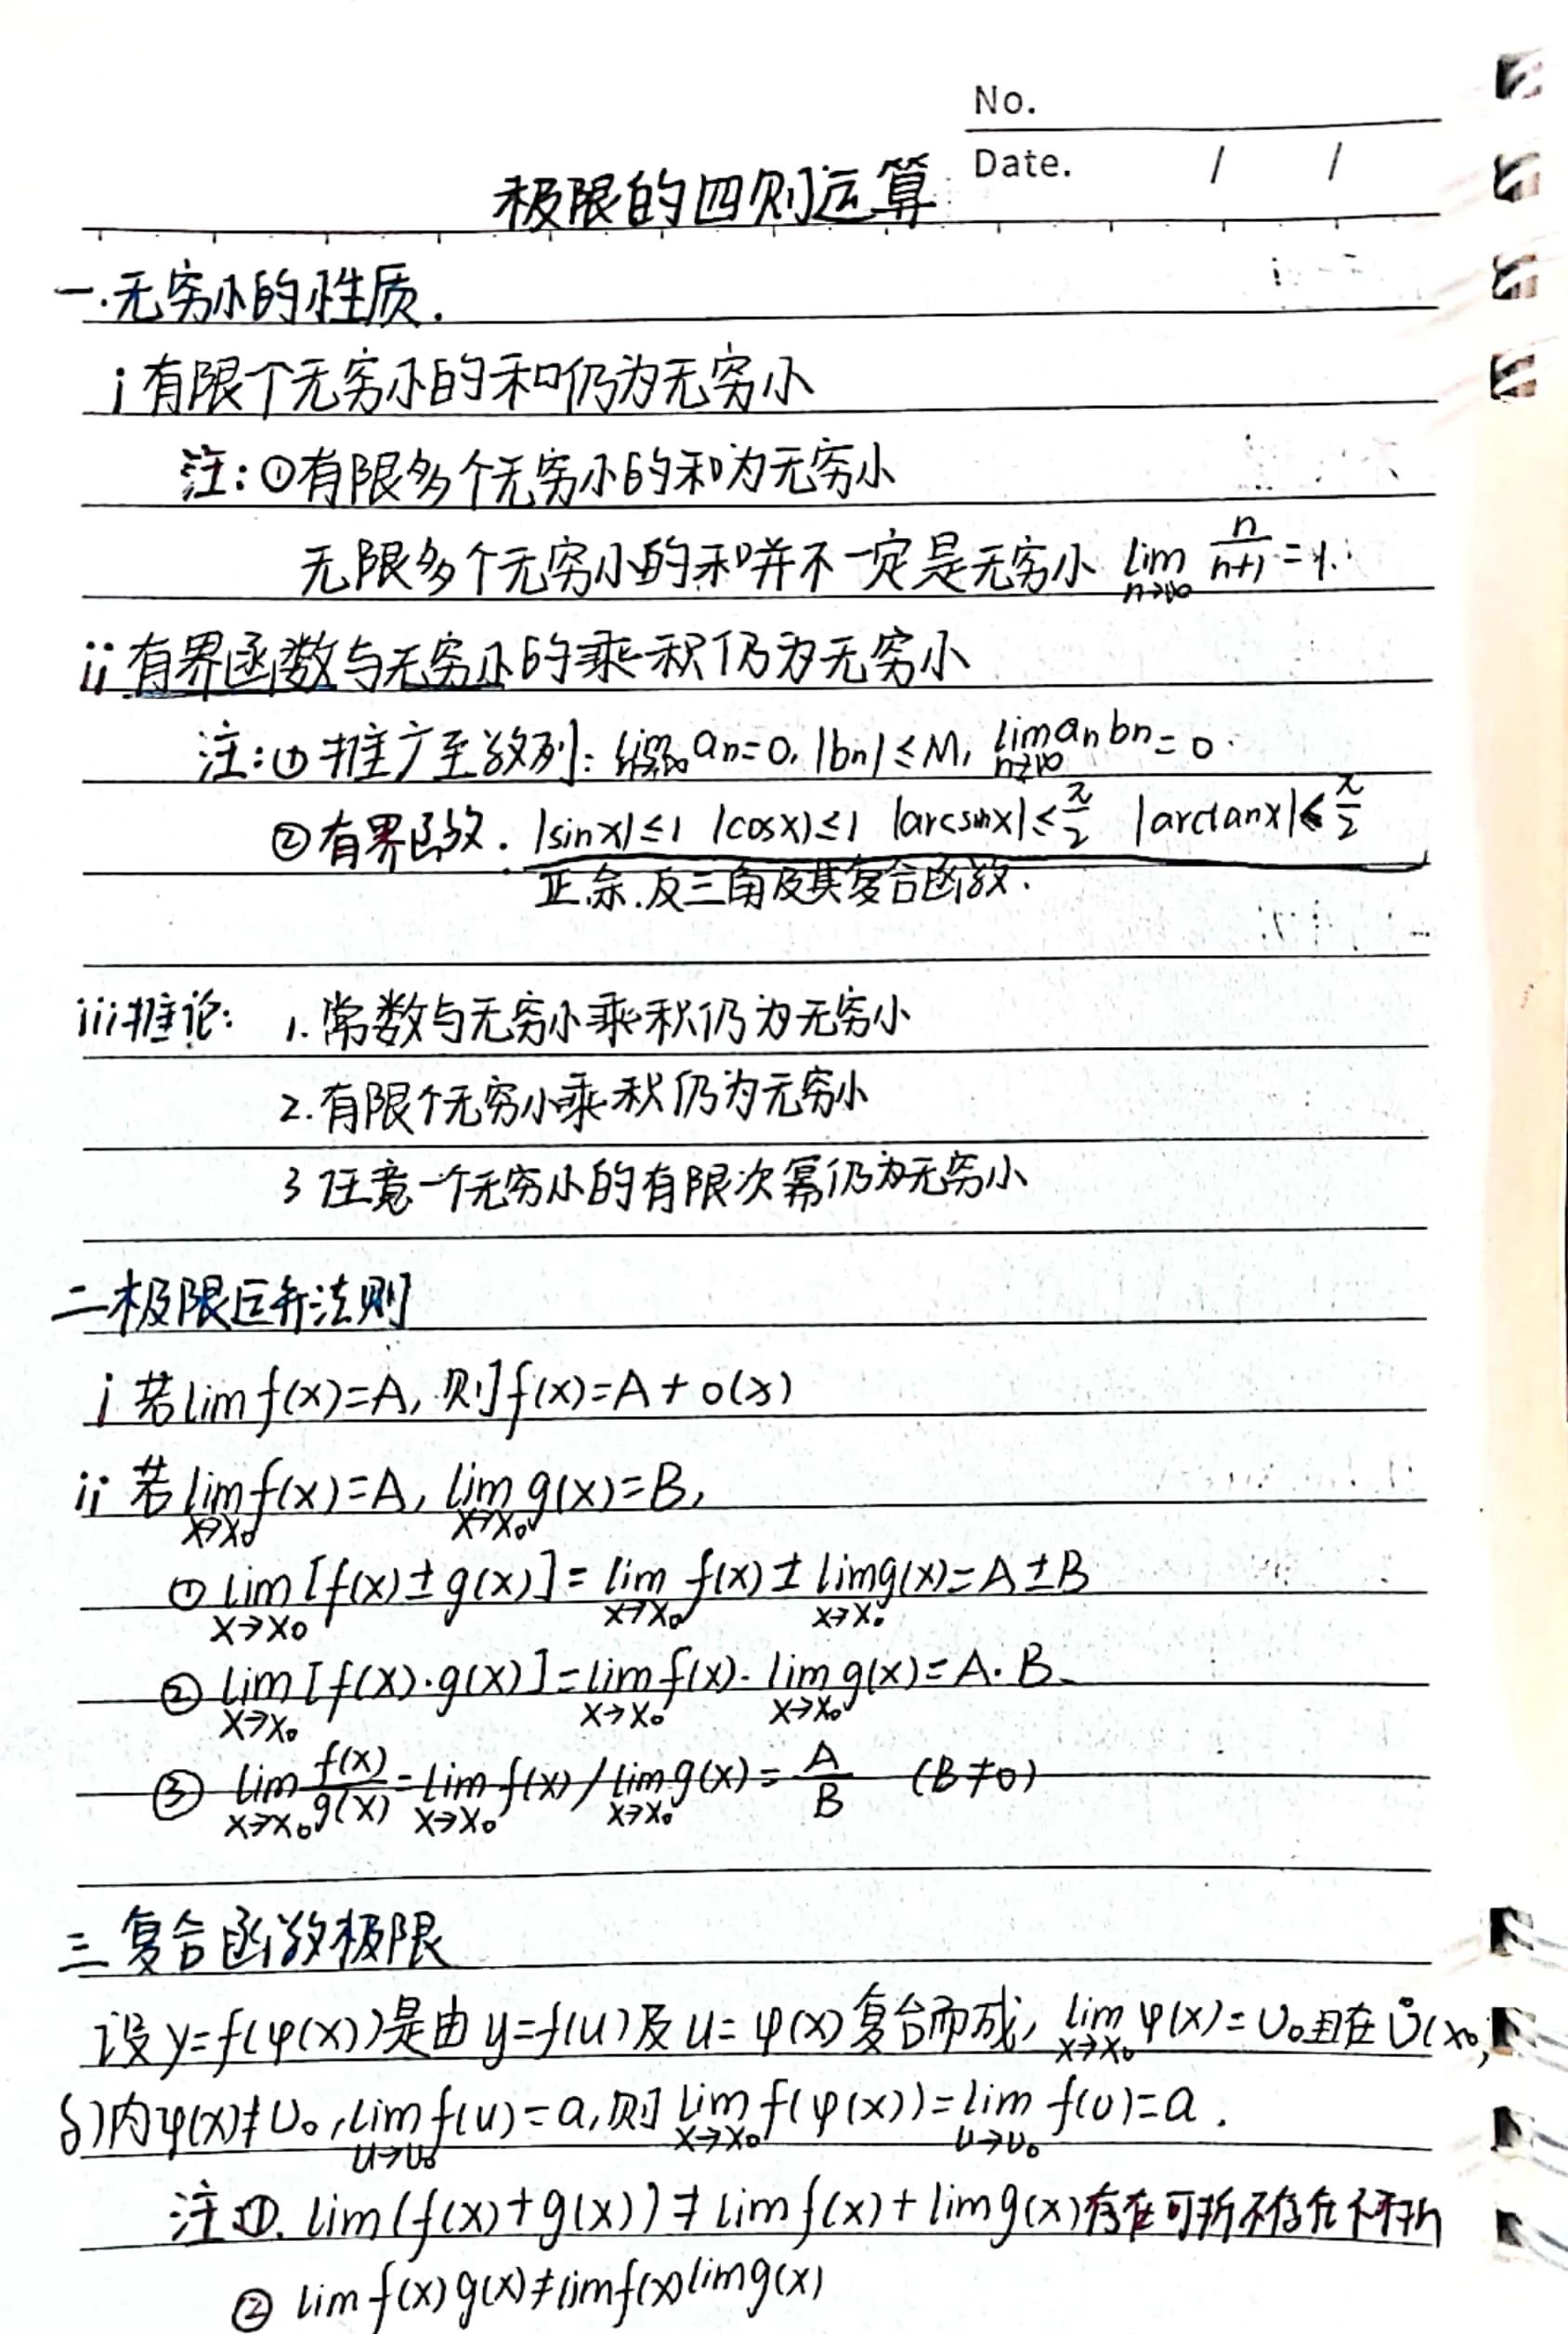 No.
Date. / /
极限的四则运算
一.无穷小的性质.
i 有限个无穷小的和仍为无穷小
注:①有限多个无穷小的和为无穷小
无限多个无穷小的和并不一定是无穷小 lim n→∞ n/(n+1) = 1.
ii 有界函数与无穷小的乘积仍为无穷小
注:① 推广至数列: lim n→∞ an=0, |bn|≤M, lim n→∞ an bn=0.
②有界函数. |sinx|≤1 |cosx|≤1 |arcsinx|≤π/2 |arctanx|≤π/2
正.余.反三角及其复合函数.
iii 推论: 1.常数与无穷小乘积仍为无穷小
2.有限个无穷小乘积仍为无穷小
3 任意一个无穷小的有限次幂仍为无穷小
二 极限运算法则
i 若lim f(x)=A, 则f(x)=A+o(x)
ii 若lim x→x₀ f(x)=A, lim x→x₀ g(x)=B,
① lim x→x₀ [f(x)±g(x)]=lim x→x₀ f(x)±lim x→x₀ g(x)=A±B
② lim x→x₀ [f(x)·g(x)]=lim x→x₀ f(x)·lim x→x₀ g(x)=A·B
③ lim x→x₀ f(x)/g(x)=lim x→x₀ f(x)/lim x→x₀ g(x)=A/B (B≠0)
三 复合函数极限
设y=f(φ(x))是由y=f(u)及u=φ(x)复合而成, lim x→x₀ φ(x)=U₀且在Ů(x₀,
δ)内φ(x)≠U₀, lim u→u₀ f(u)=a, 则 lim x→x₀ f(φ(x))=lim u→u₀ f(u)=a.
注①. lim(f(x)+g(x))≠lim f(x)+lim g(x) 存在可拆不存在不可拆
② lim f(x)g(x)≠lim f(x) lim g(x)